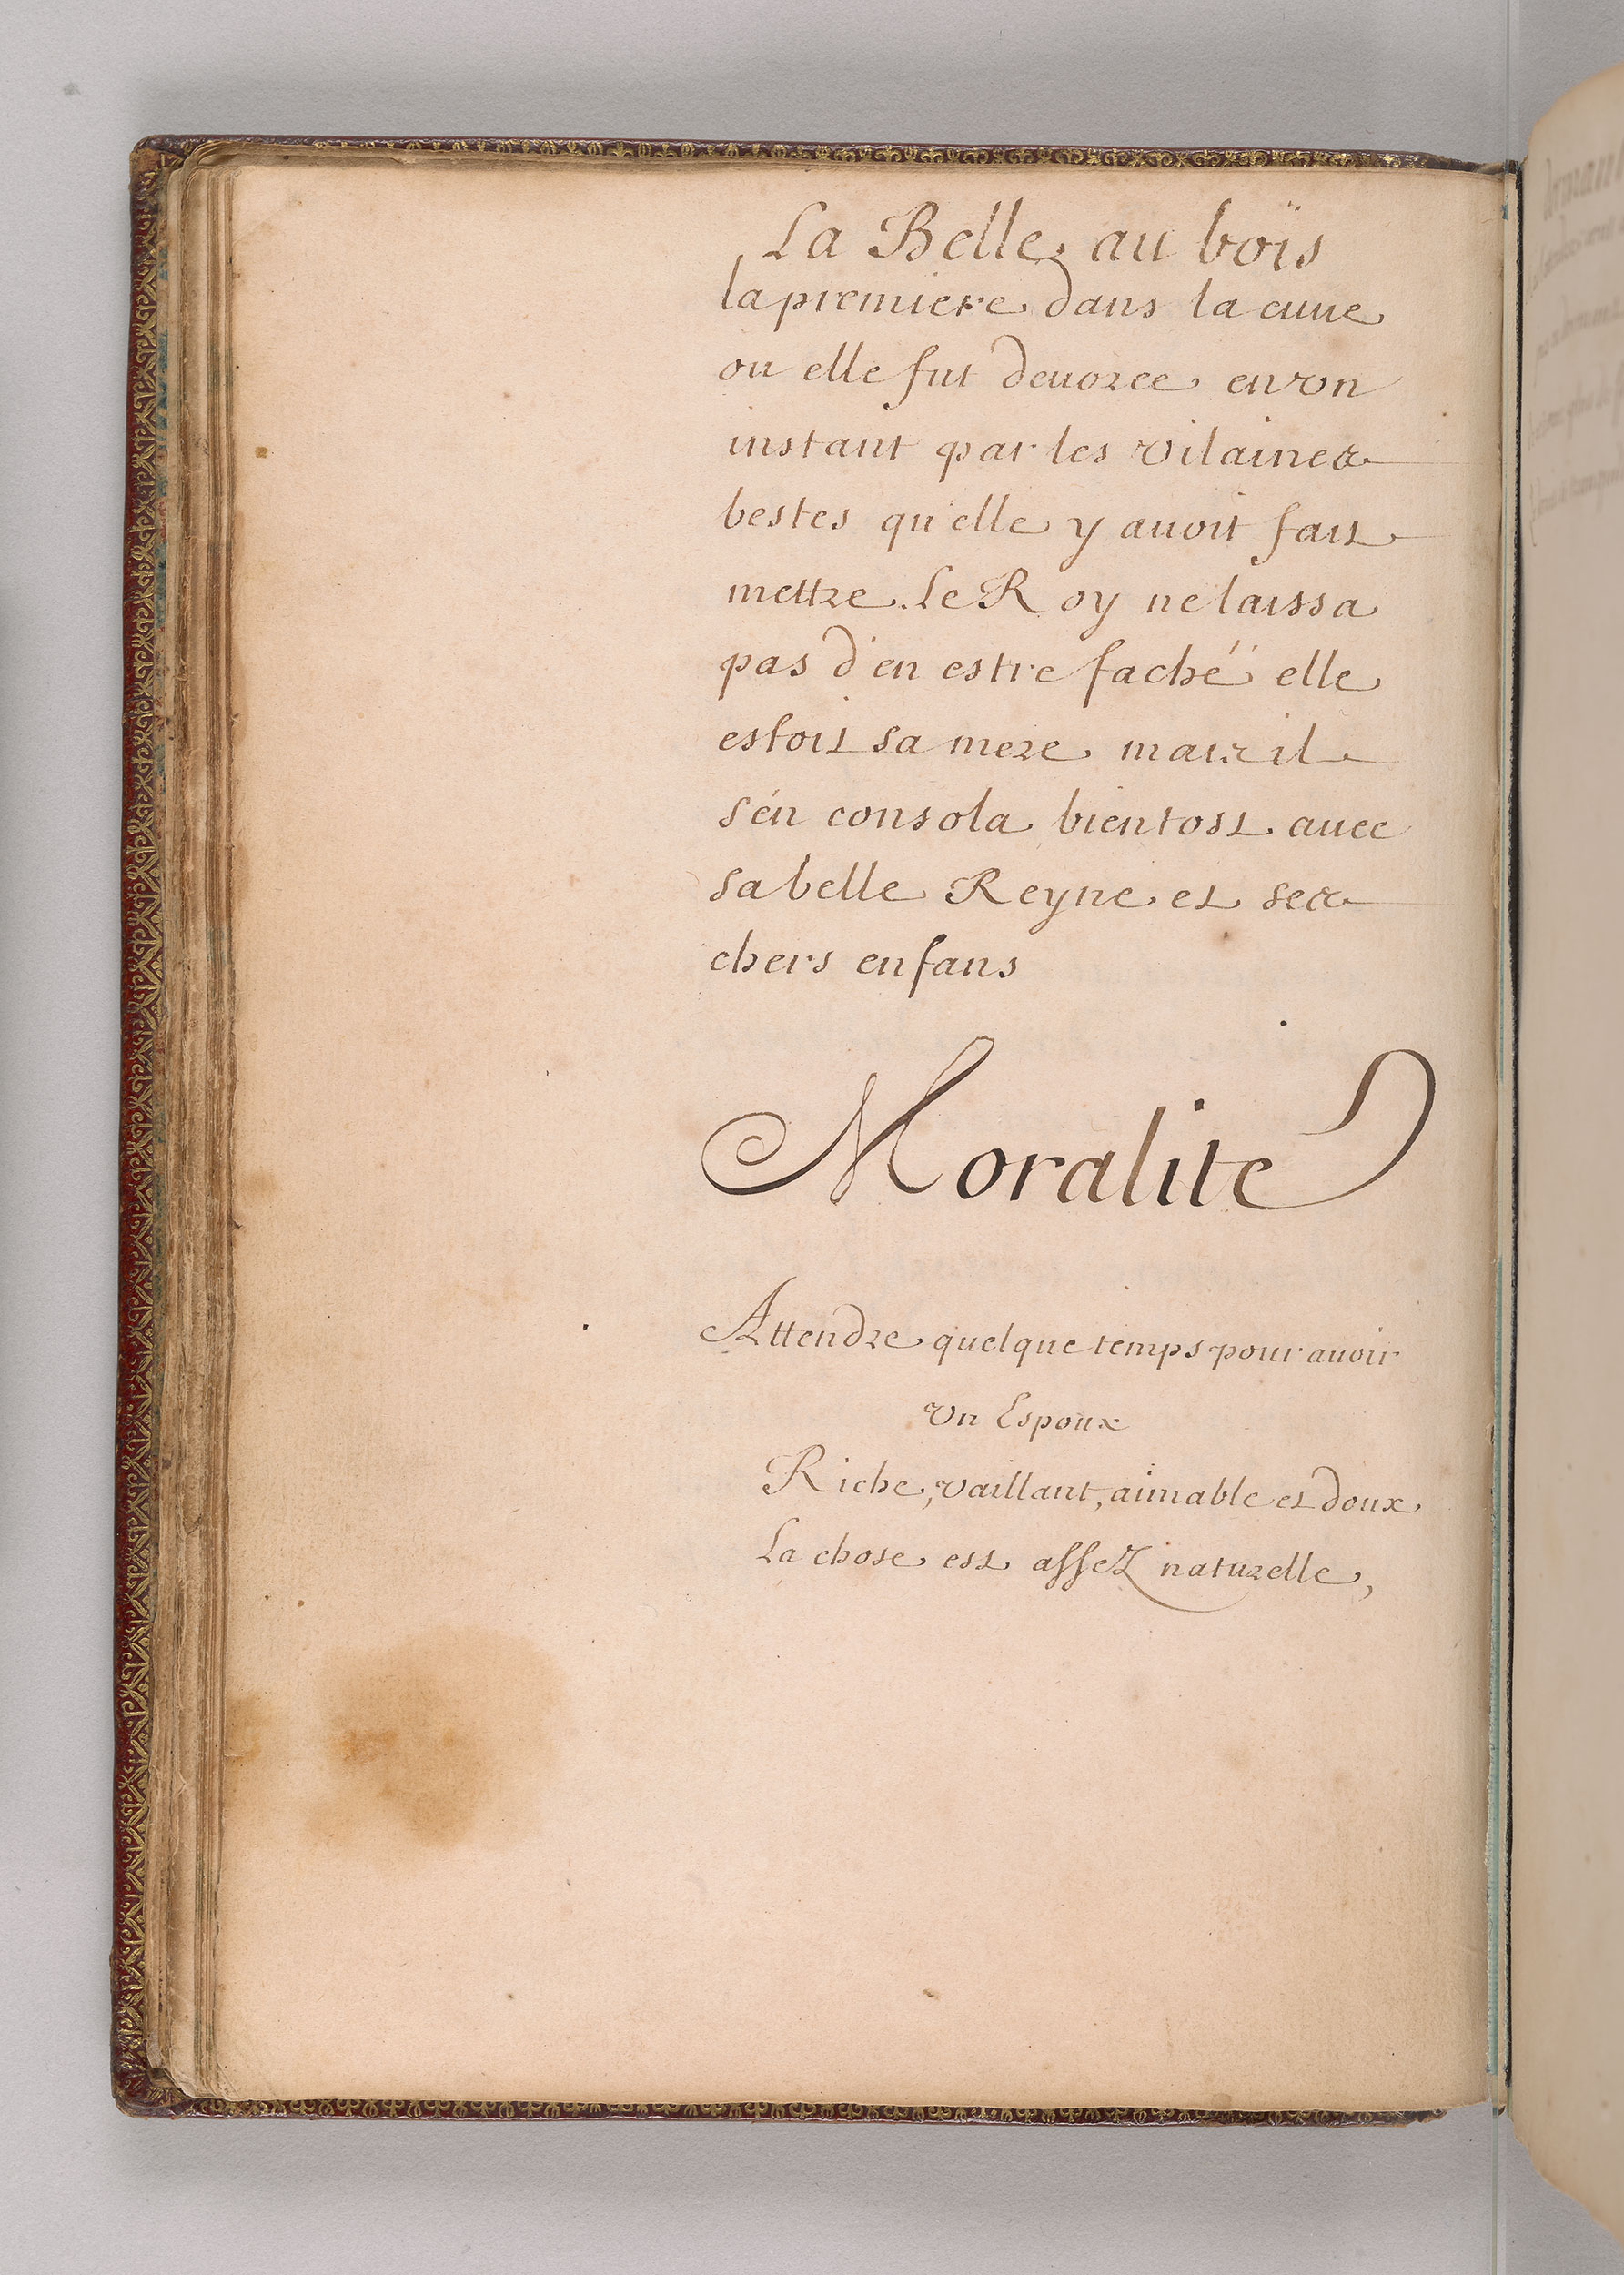 La Belle au boïs
la premiere dans la cuue
ou elle fut deuoree en vn
instant par les vilaines
bestes qu'elle y auoit fait
mettre. Le Roy ne laissa
pas d'en estre faché elle
estoit sa mere mais il
s'en consola bientost auec
sa belle Reyne et ses
chers enfans
Moralite
Attendre quelque temps pour auoir
vn Espoux
Riche, vaillant, aimable et doux
La chose est assez naturelle,